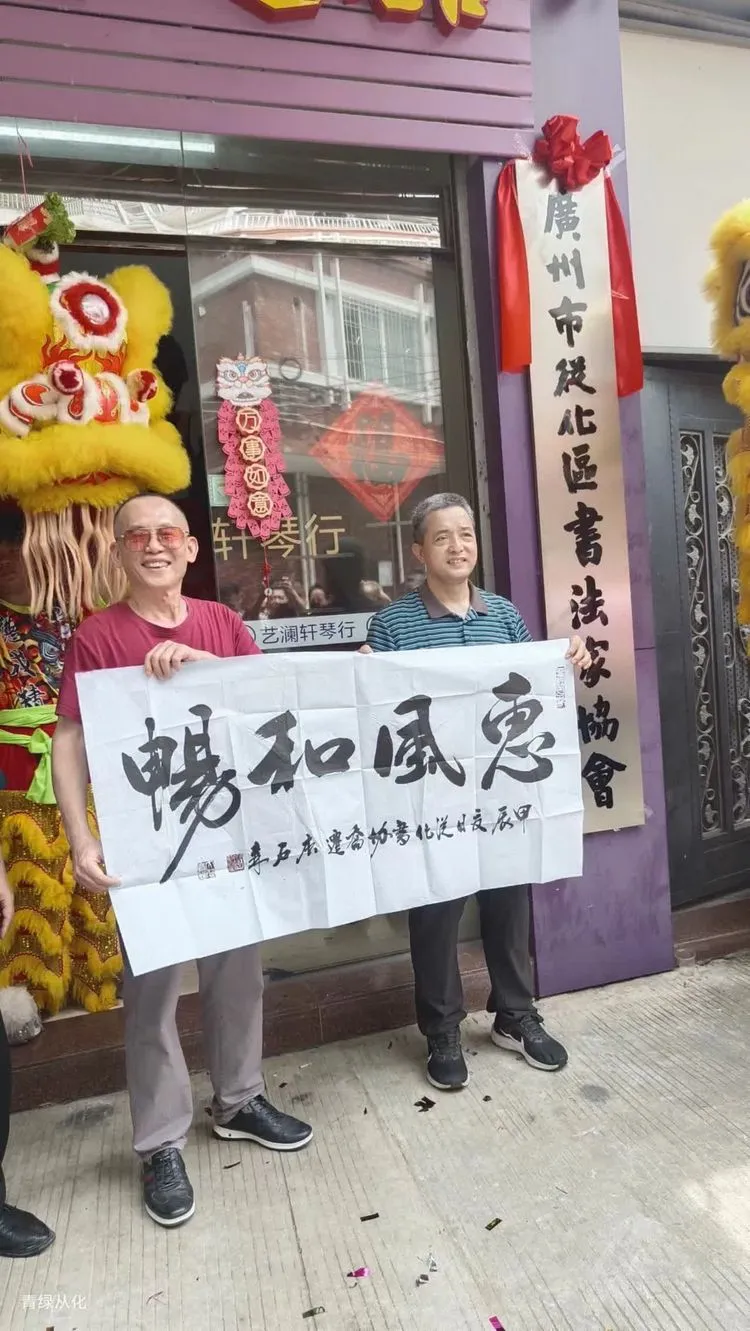 廣州市從化區書法家協會
万事如意
轩琴行
艺澜轩琴行
惠風和暢
甲辰夏日從化書協喬遷
青绿从化